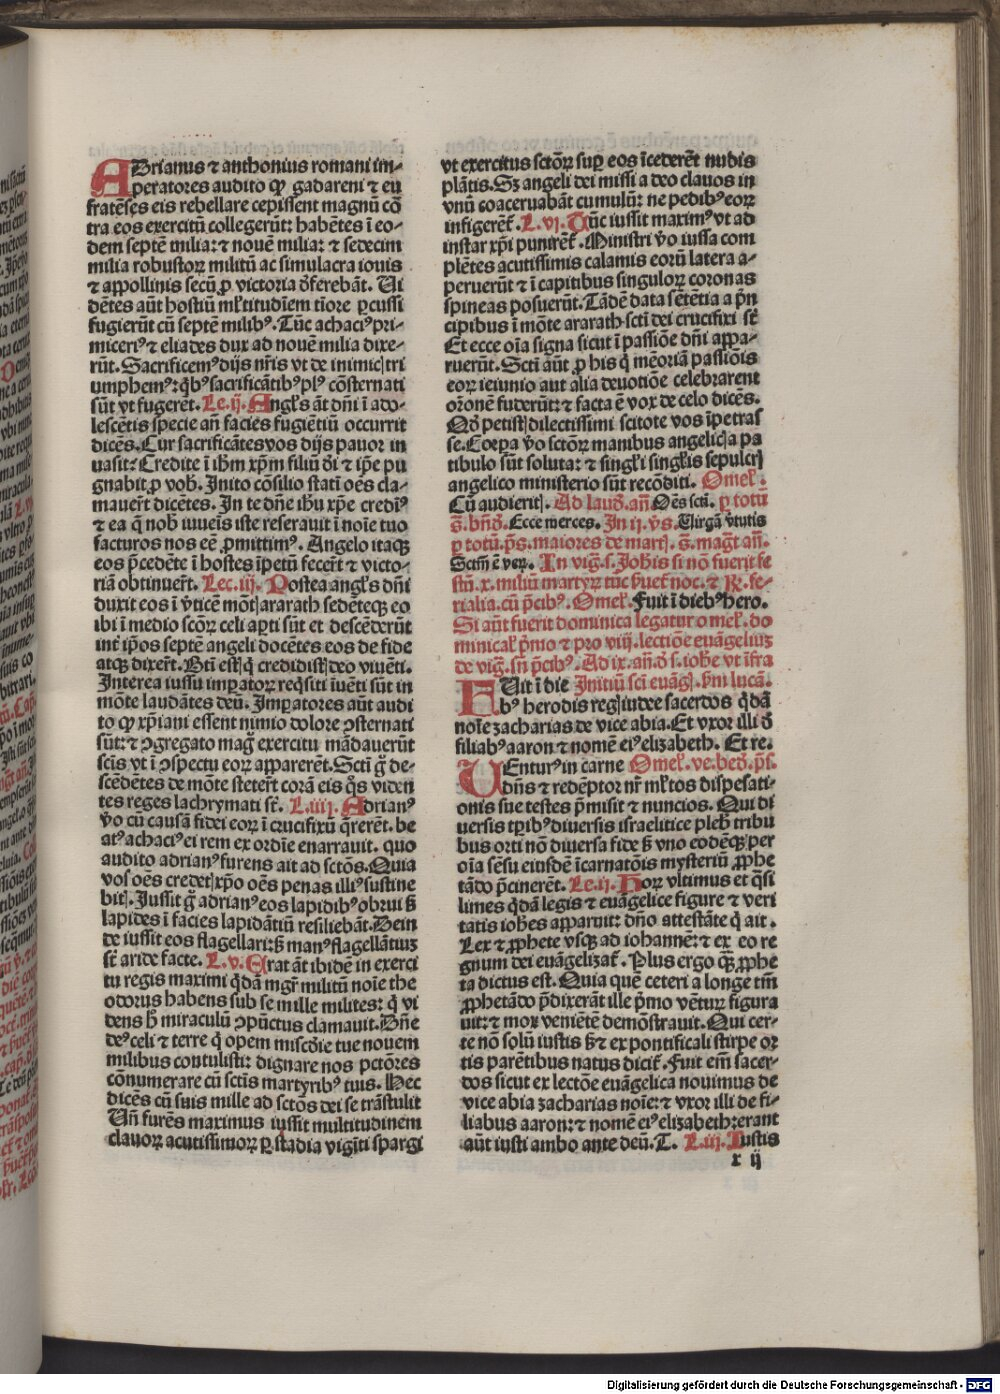 ADrianus ⁊ anthonius romani im-
peratores audito ꝙ gadareni ⁊ eu
fratēses eis rebellare cepissent magnū cō
tra eos exercitū collegerūt: habētes ī eo-
dem septē milia: ⁊ nouē milia: ⁊ sedecim
milia robustoꝝ militū ac simulacra iouis
⁊ appollinis secū ꝓ victoria d̄ferebāt. Ui
dētes aūt hostiū ml̄titudīem tīore ꝑcussi
fugierūt cū septē milibꝰ. Tūc achaciꝰ pri-
miceriꝰ ⁊ eliades dux ad nouē milia dixe-
rūt. Sacrificemꝰ dijs nr̄is vt de inimicꝭ tri
umphemꝰ: qͥbꝰ sacrificātibꝰ plꝰ cōsternati
sūt vt fugerēt. Le.ij. Angl̄s āt dn̄i ī ado-
lescētis specie an̄ facies fugiētiū occurrit
dicēs. Cur sacrificātes vos dijs pauor in
uasit? Credite ī ihm xp̄m filiū d̄i ⁊ ip̄e pu
gnabit ꝓ vob̄. Inito cōsilio stati oēs cla-
mauerūt dicētes. In te dn̄e ihu xp̄e credīꝰ
⁊ ea q̄ nob̄ iuueis iste reserauit ī noīe tuo
facturos nos eē ꝓmittimꝰ. Angelo itaqꝫ
eos p̄cedēte ī hostes īpetū fecer̄t ⁊ victo-
riā obtinuer̄t. Lec.iij. Postea angl̄s dn̄i
duxit eos ī v̄ticē mōtꝭ ararath sedēteqꝫ eo
ibi ī medio scōꝝ celi aꝑti sūt et descēderūt
int̄ ip̄os septē angeli docētes eos de fide
atqꝫ dixer̄t. Bt̄i estꝭ q̄ credidistꝭ deo viuēti.
Interea iussu imꝑatoꝝ reqͥsiti iuēti sūt in
mōte laudātes deū. Imꝑatores aūt audi
to ꝙ xp̄iani essent nimio dolore ↄsternati
sūt: ⁊ ↄgregato mag̊ exercitu mādauerūt
sctīs vt ī ↄspectu eoꝝ apparerēt. Sctī g̊ de-
scēdētes de mōte steter̄t corā eis qͦs viden
tes reges lachrymati st̄. L.iiij. Adrianꝰ
v̄o cū causā fidei eoꝝ ī crucifixū q̄rerēt. be
atꝰ achaciꝰ ei rem ex ordīe enarrauit. quo
audito adrianꝰ furens ait ad sctōs. Quia
vos oēs credetꝭ xp̄o oēs penas illiꝰ sustine
bitꝭ. Jussit g̊ adrianꝰ eos lapidibꝰ obrui sꝫ
lapides ī facies lapidātiū resiliebāt. Dein
de iussit eos flagellari: sꝫ manꝰ flagellātiuꝫ
st̄ aride facte. L.v. Erat āt ibidē in exerci
tu regis maximi qͥdā mgr̄ militū noīe the
odorus habens sub se mille milites: q̄ vi
dens h̄ miraculū ↄpūctus clamauit. Dn̄e
deꝰ celi ⁊ terre q̄ opem misc̄die tue nouem
milibus contulisti: dignare nos pctōres
cōnumerare cū sctīs martyribꝰ tuis. Hec
dicēs cū suis mille ad sctōs dei se trāstulit
Un̄ furēs maximus iussit multitudinem
clauoꝝ acutissimoꝝ ꝑ stadia vigīti spargi
vt exercitus sctōꝝ suꝑ eos īcederēt nudis
plātis. Sꝫ angeli dei missi a deo clauos in
vnū coaceruabāt cumulū: ne pedibꝰ eoꝝ
infigerēt. L.vj. Tūc iussit maximꝰ vt ad
instar xp̄i punirēt. Ministri v̄o iussa com
plētes acutissimis calamis eorū latera a-
peruerūt ⁊ ī capitibus singuloꝝ coronas
spineas posuerūt. Tādē data sētētia a p̄n
cipibus ī mōte ararath sctī dei crucifixi st̄
Et ecce oīa signa sicut ī passiōe dn̄i appa-
ruerūt. Sctī aūt ꝓ his q̄ mēoriā passiōis
eoꝝ ieiunio aut alia deuotiōe celebrarent
or̄onē fuderūt: ⁊ facta ē vox de celo dicēs.
Qd̄ petistꝭ dilectissimi scitote vos īpetras
se. Corpa v̄o sctōꝝ manibus angelicꝭ a pa
tibulo sūt soluta: ⁊ singl̄i singl̄is sepulcrꝭ
angelico ministerio sūt recōditi. Omel̄.
Cū audieritꝭ. Ad laud̄. an̄ Oēs sctī. ꝑ totū
s̄. bn̄d̄. Ecce merces. In ij. v̄s. Uirgā v̄tutis
ꝑ totū. p̄s. maiores de martꝭ. s̄. mag̅t an̄.
Sctīꝭ ē ver̄. In vig̅. s. Joh̄is si nō fuerit fe
stū. x. miliū martyꝝ tūc h̄uet̄ noc. ⁊ R̄. fe-
rialia. cū p̄cibꝰ. Omel̄. Fuit ī diebꝰ hero.
Si aūt fuerit dominica legatur omel̄. do
minical̄ p̄mo ⁊ pro viij. lectiōe euāgeliuꝫ
de vig̅. sn̄ p̄cibꝰ. Ad ix. an̄. d̄ s. ioh̄e vt īfra
FUit ī die Initiū scī euāgꝭ. ẜm lucā.
bꝰ herodis regꝭ iudee sacerdos qͥdā
noīe zacharias de vice abia. Et vxor illi d̄
filiabꝰ aaron ⁊ nomē eiꝰ elizabeth. Et re.
UEnturꝰ in carne Omel̄. ve. bed̄. p̄s.
dn̄s ⁊ redēptor nr̄ ml̄tos dispēsati-
onis sue testes p̄misit ⁊ nuncios. Qui di
uersis tp̄ibꝰ diuersis israelitice plebꝭ tribu
bus orti nō diuersa fide sꝫ vno eodēqꝫ per
oīa sēsu eiusdē īcarnatōis mysteriū ꝓphe
tādo p̄cinerēt. Le.ij. Hoꝝ vltimus et qͣsi
limes qͥdā legis ⁊ euāgelice figure ⁊ veri
tatis ioh̄es apparuit: dn̄o attestāte q̄ ait.
Lex ⁊ ꝓphete vsqꝫ ad iohannē: ⁊ ex eo re
gnum dei euāgelizat̄. Plus ergo qꝫ ꝓphe
ta dictus est. Quia quē ceteri a longe tm̄
ꝓphetādo p̄dixerāt ille p̄mo vētuꝝ figura
uit: ⁊ mox veniētē demōstrauit. Qui cer-
te nō solū iustis sꝫ ⁊ ex pontificali stirpe or
tis parētibus natus dicit̄. Fuit em̄ sacer-
dos sicut ex lectōe euāgelica nouimus de
vice abia zacharias noīe: ⁊ vxor illi de fi-
liabus aaron: ⁊ nomē eiꝰ elizabeth: erant
aūt iusti ambo ante deū. T. L.iij. Iustis
x ij
Digitalisierung gefördert durch die Deutsche Forschungsgemeinschaft - DFG